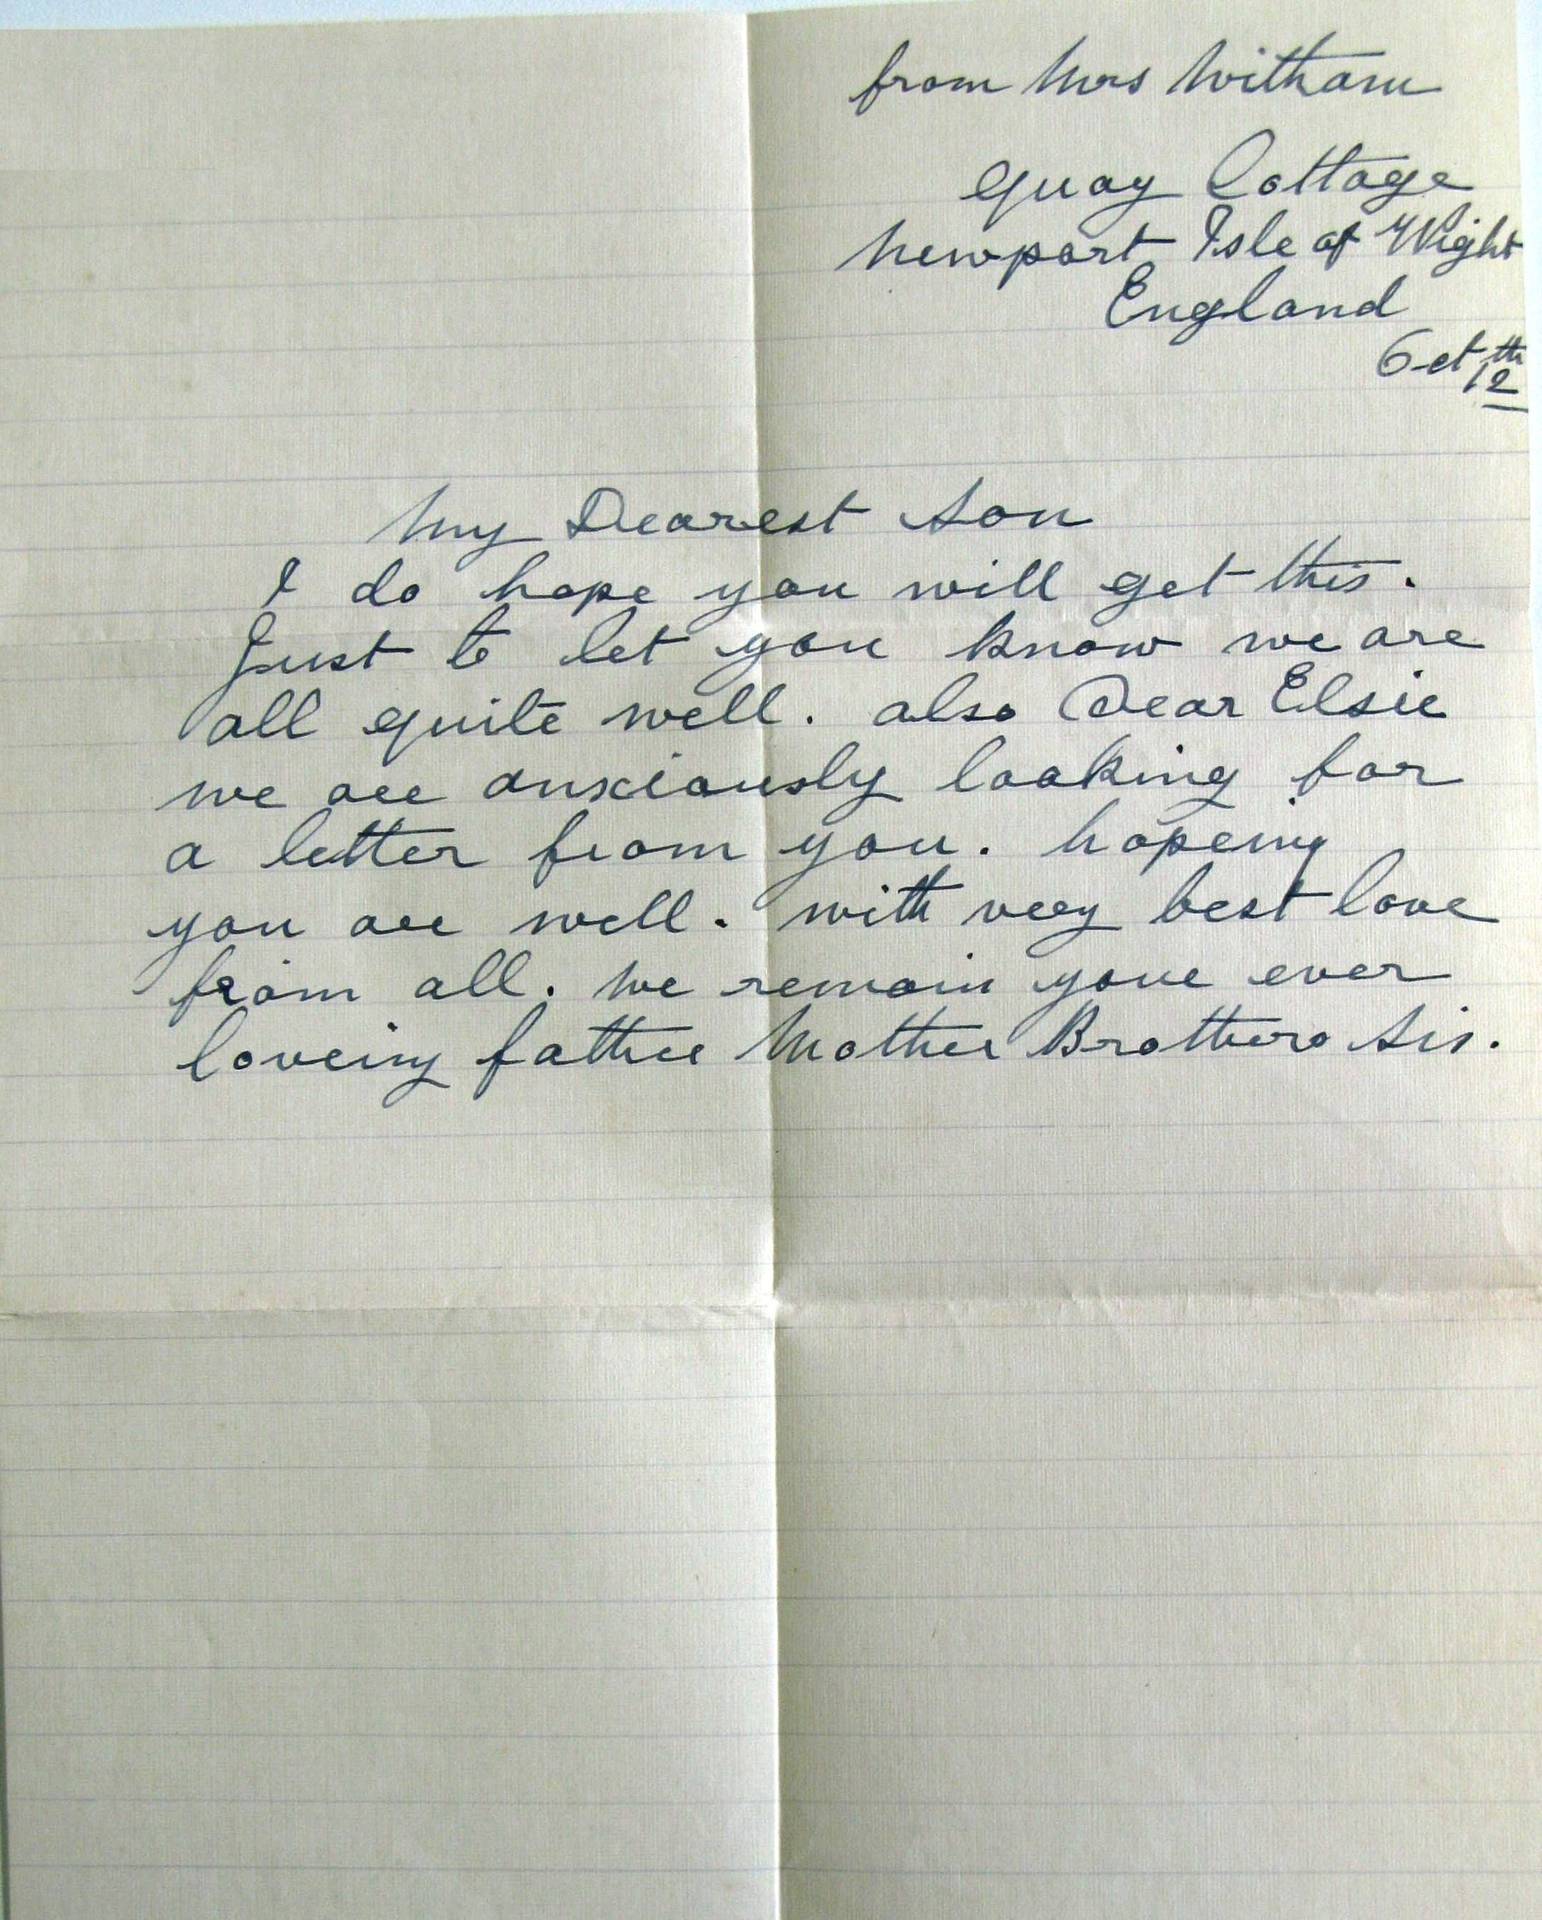 from Mrs Witham
Quay Cottage
Newport Isle of Wight
England
Oct 12th
My Dearest Son
I do hope you will get this.
Just to let you know we are
all quite well. also Dear Elsie
we are anxiously looking for
a letter from you. hopeing
you are well. with very best love
from all. We remain your ever
loveing father Mother Brothers Sis.